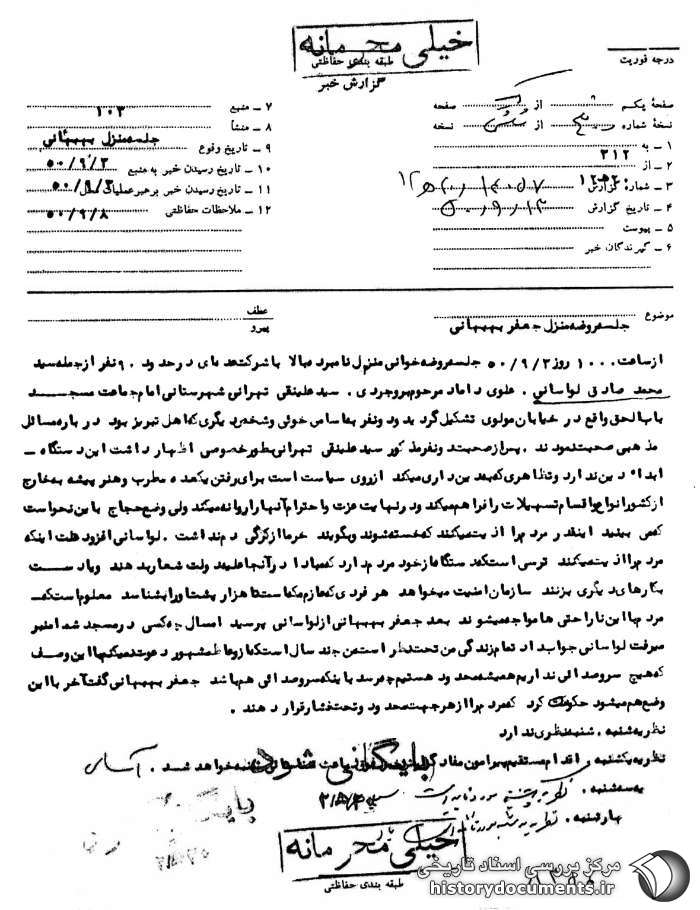 خیلی محرمانه
طبقه بندی حفاظتی
گزارش خبر
درجه فوریت
صفحه یکم از صفحه
نسخه شماره از نسخه
۱ ـ به
۲ ـ از ۳۱۲
۳ ـ شماره گزارش
۴ ـ تاریخ گزارش
۵ ـ پیوست
۶ ـ گیرندگان خبر
۷ ـ منبع ۱۰۳
۸ ـ منشأ جلسه منزل بهبهانی
۹ ـ تاریخ وقوع ۵۰/۹/۳
۱۰ ـ تاریخ رسیدن خبر به منبع ۵۰/۹/۳
۱۱ ـ تاریخ رسیدن خبر برهبر عملیات ۵۰/۹/۸
۱۲ ـ ملاحظات حفاظتی
موضوع جلسه روضه منزل جعفر بهبهانی
عطف
پیرو
از ساعت ۱۰۰۰ روز ۵۰/۹/۳ جلسه روضه خوانی منزل نامبرده بالا با شرکت عده ای در حدود ۹۰ نفر از جمله سید
محمد صادق لواسانی ، علوی داماد مرحوم بروجردی ، سید علینقی تهرانی شهرستانی امام جماعت مسجد
باب الحق واقع در خیابان مولوی تشکیل گردید و دو نفر به اسامی خوئی و شخص دیگری که اهل تبریز بود در باره مسائل
مذهبی صحبت نمودند . پس از صحبت دو نفر مذکور سید علینقی تهرانی بطور خصوصی اظهار داشت این دستگاه ـ
ابدا" دین ندارد و تظاهری که به دین داری میکند از روی سیاست است برای رفتن یک عده مطرب و هنر پیشه به خارج
از کشور انواع و اقسام تسهیلات را فراهم میکند و در نهایت عزت و احترام آنها را روانه میکند ولی وضع حجاج باین نحو است
که می بینید اینقدر مردم را اذیت میکنند که خسته شوند و بگویند خر ما از کرگی دم نداشت . لواسانی افزود علت اینکه
مردم را اذیت میکنند ترسی است که دستگاه از خود مردم دارد که مبادا در آنجا علیه دولت شعار بدهند و یا دست
بکارهای دیگری بزنند سازمان امنیت میخواهد هر فردی که عازم مکه است تا هزار پشت او را بشناسد معلوم است که
مردم با این ناراحتی ها مواجه میشوند بعد جعفر بهبهانی از لواسانی پرسید امسال چه کسی در مسجد شما منبر
میرفت لواسانی جواب داد تمام زندگی من تحت نظر است من چند سال است که از وعاظ مشهور دعوت نمیکنم با این وصف
که هیچ سر و صدائی نداریم همیشه محدود هستیم چه برسد باینکه سر و صدائی هم باشد جعفر بهبهانی گفت آخر با این
وضع هم میشود حکومت کرد که مردم را از هر جهت محدود و تحت فشار قرار دهند .
نظریه شنبه . شنبه نظری ندارد
نظریه یکشنبه . اقدام مستقیم پیرامون مفاد گزارش خواهد شد . آسای
بایگانی شود
سه شنبه .
چهارشنبه .
خیلی محرمانه
طبقه بندی حفاظتی
مرکز بررسی اسناد تاریخی
historydocuments.ir